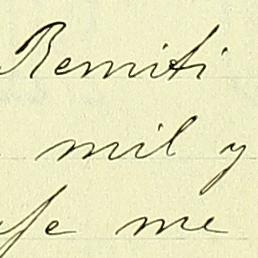 Remiti
mil y
se me